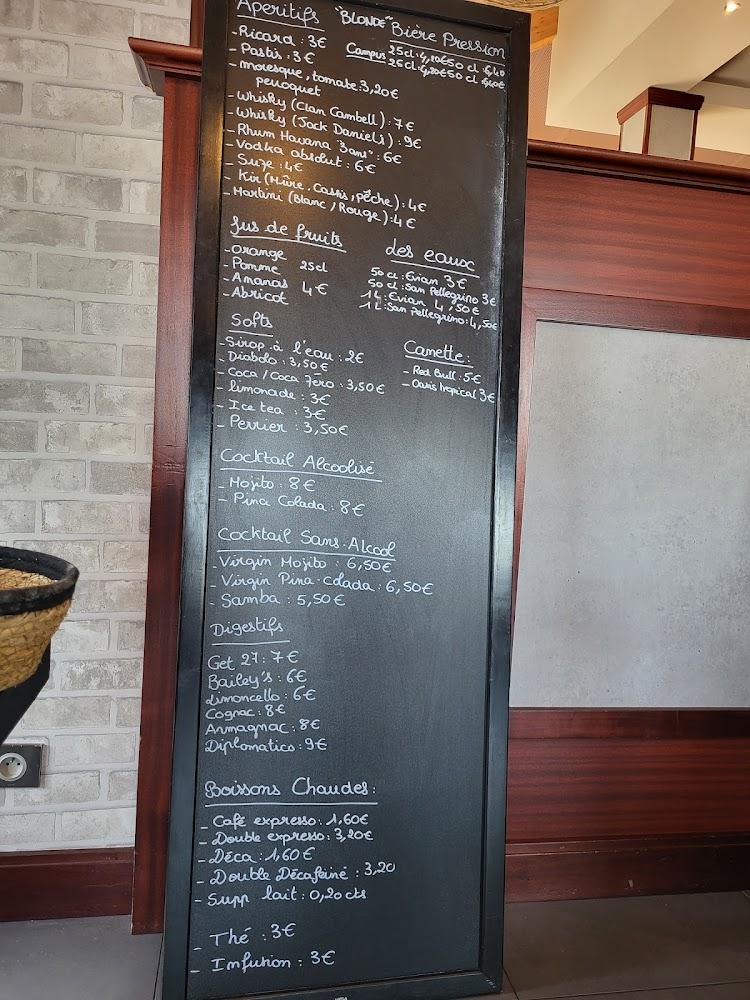 Aperitifs
- Ricard : 3€
- Pastis : 3€
- moresque, tomate : 3,20€
perroquet
- Whisky (Clan Cambell) : 7€
- Whisky (Jack Daniel's) : 9€
- Rhum Havana 3ans" : 6€
- Vodka absolut : 6€
- Suze : 4€
- Kir (Mûre, Cassis, pêche) : 4€
- Martini (Blanc / Rouge) : 4€
"BLONDE" Bière Pression
Campus 25cl : 4,20€ 50 cl : 6,40
25cl : 4,20€ 50 cl : 6,40€
Jus de fruits
- Orange
- Pomme 25cl
- Ananas 4€
- Abricot
des eaux
50 cl : Evian 3€
50 cl : San Pellegrino 3€
1L : Evian 4,50€
1L : San Pellegrino : 4,50€
Softs
- Sirop à l'eau : 2€
- Diabolo : 3,50€
- Coca / Coca Zéro : 3,50€
- limonade : 3€
- Ice tea : 3€
- Perrier : 3,50€
Canette :
- Red Bull : 5€
- Oasis tropical 3€
Cocktail Alcoolisé
- Mojito : 8€
- Pina Colada : 8€
Cocktail Sans-Alcool
- Virgin Mojito : 6,50€
- Virgin Pina-colada : 6,50€
- Samba : 5,50€
Digestifs
Get 27 : 7€
Bailey's : 6€
Limoncello : 6€
Cognac : 8€
Armagnac : 8€
Diplomatico : 9€
Boissons Chaudes :
- Café expresso : 1,60€
- Double expresso : 3,20€
- Déca : 1,60€
- Double Décaféiné : 3,20
- Supp lait : 0,20cts
- Thé : 3€
- Infusion : 3€